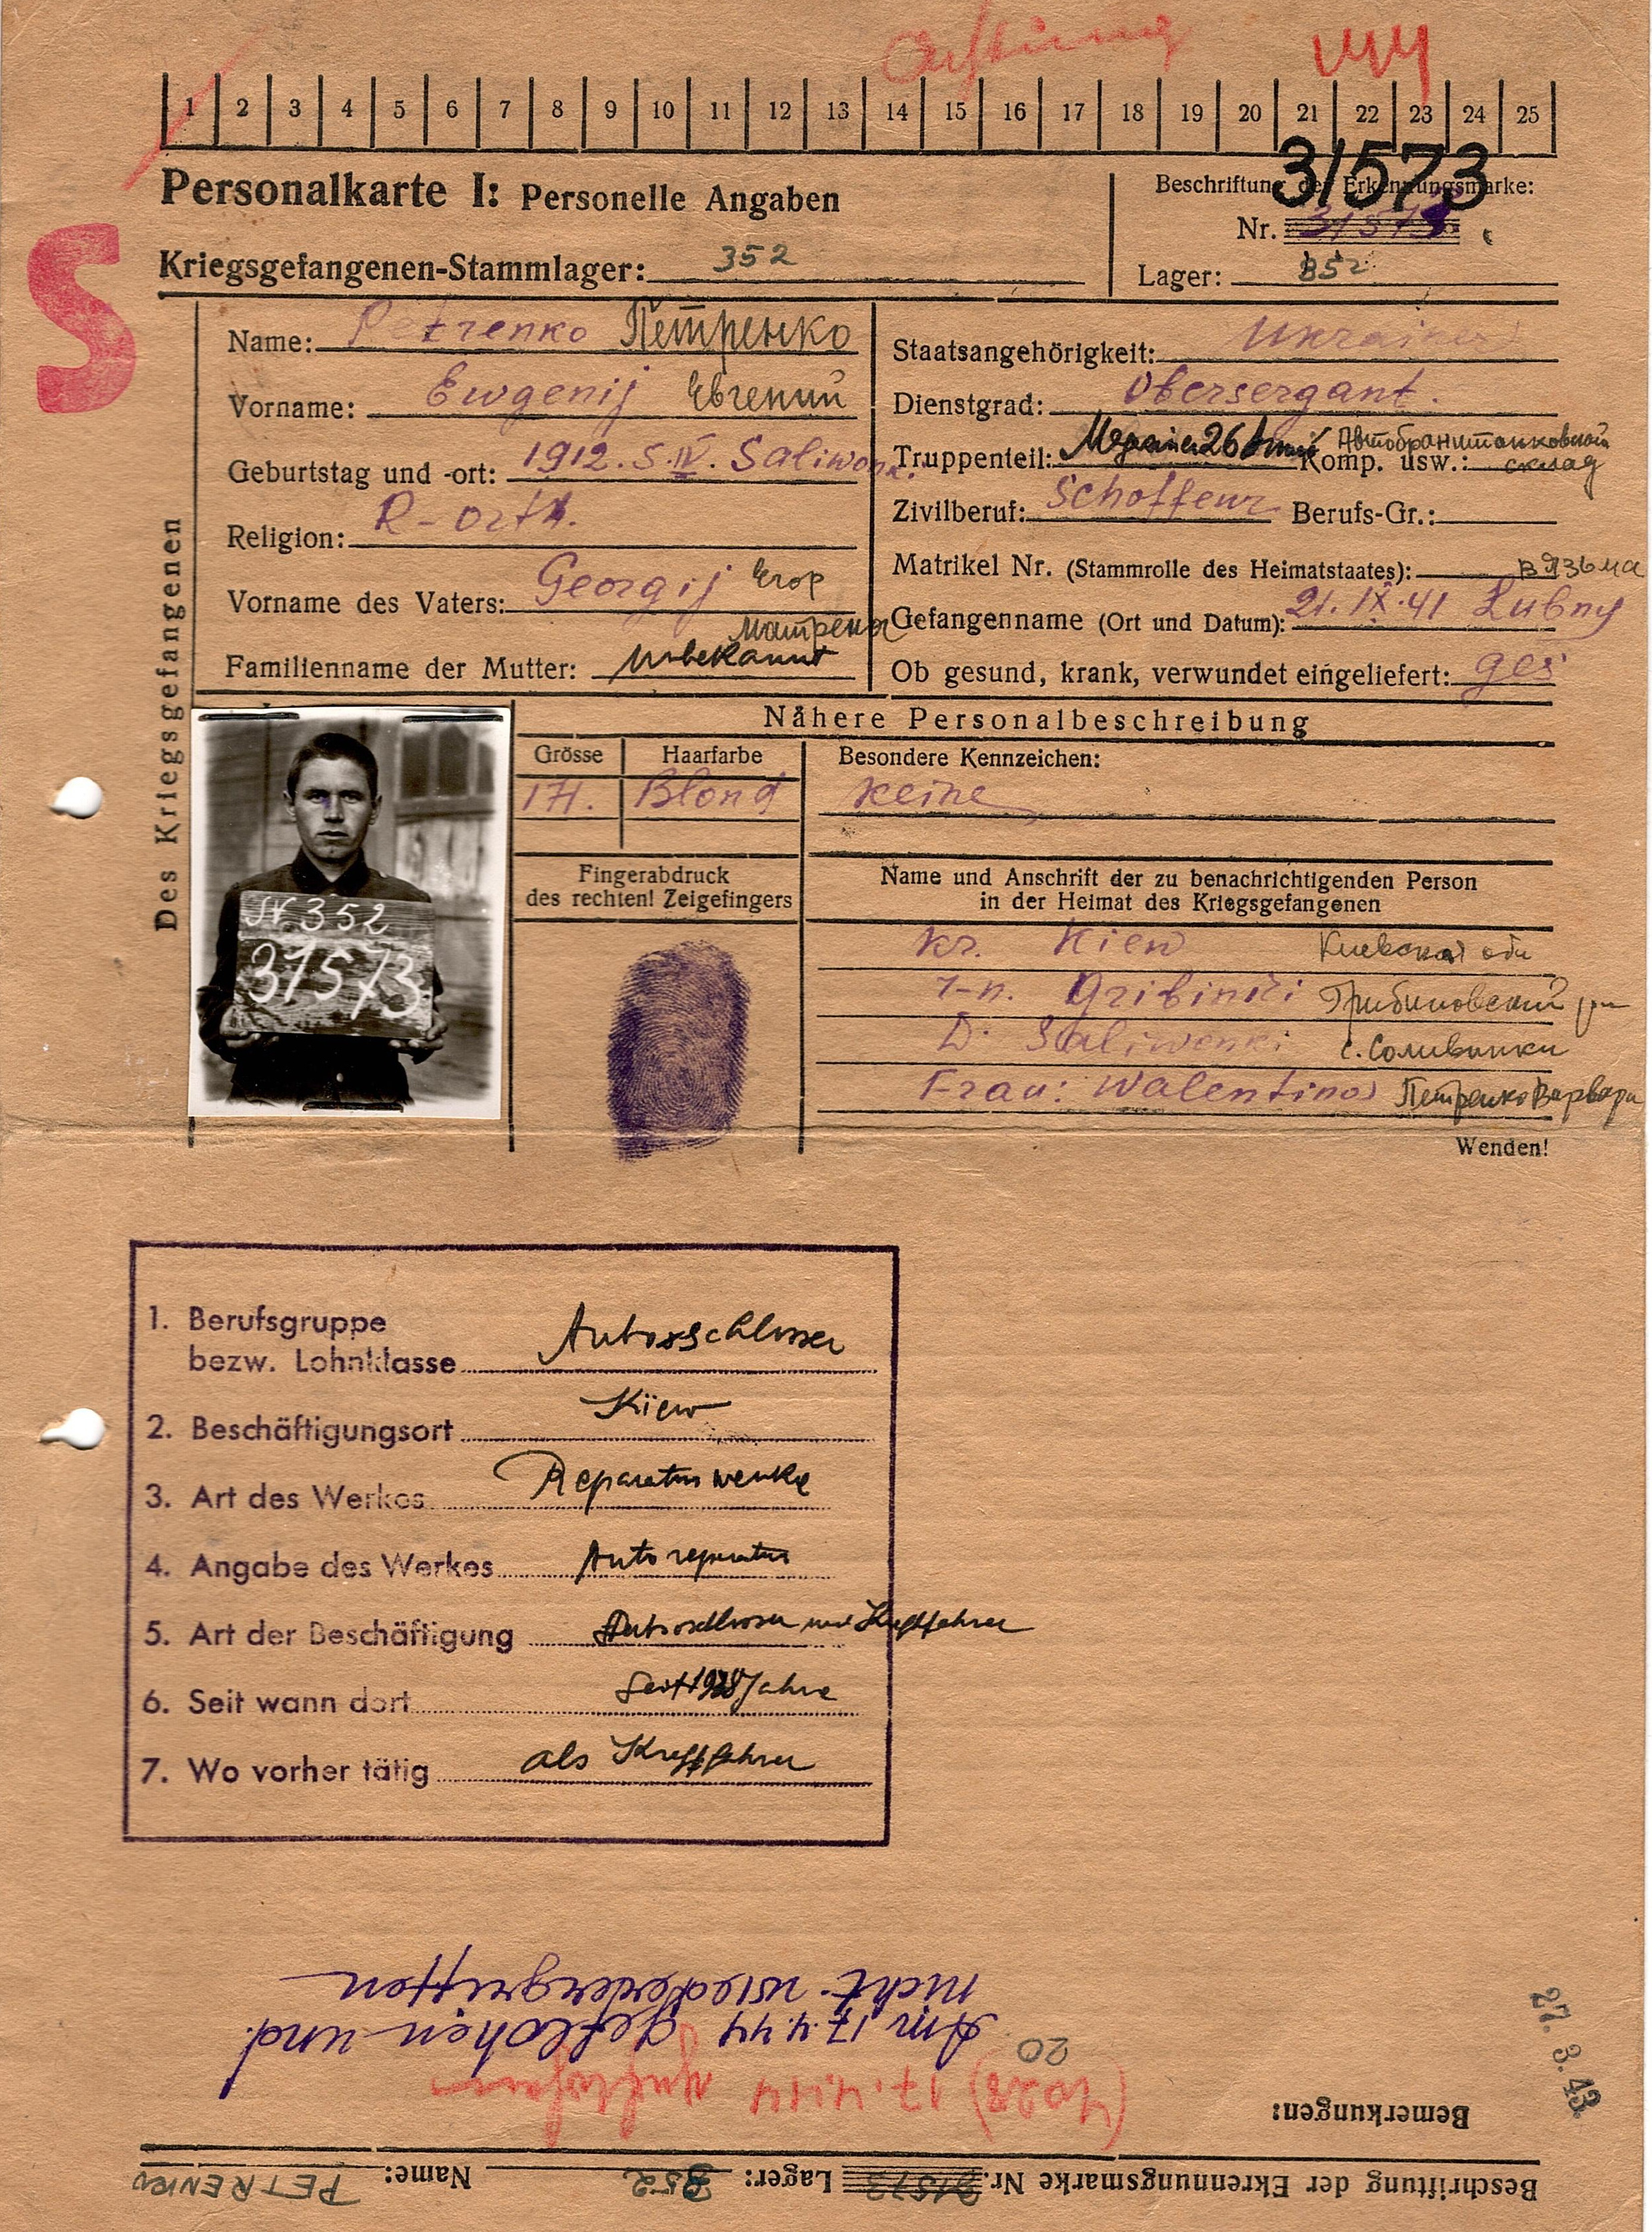 Achtung
1 2 3 4 5 6 7 8 9 10 11 12 13 14 15 16 17 18 19 20 21 22 23 24 25
31573
Personalkarte I: Personelle Angaben
Beschriftung der Erkennungsmarke:
Nr. 31573
Kriegsgefangenen-Stammlager: 352
Lager: 352
S
Des Kriegsgefangenen
Name: Petrenko Петренко
Vorname: Ewgenij Евгений
Geburtstag und -ort: 1912. 5. IV. Saliwonk.
Religion: R-orth.
Vorname des Vaters: Georgij Егор
Матрена
Familienname der Mutter: Unbekannt
Staatsangehörigkeit: Ukrainer
Dienstgrad: Obersergant.
Truppenteil: 26 Komp. usw.: склад
Zivilberuf: Schoffeur Berufs-Gr.:
Matrikel Nr. (Stammrolle des Heimatstaates): Вязьма
Gefangenname (Ort und Datum): 21. IX. 41 Lubny
Ob gesund, krank, verwundet eingeliefert: ges
Nähere Personalbeschreibung
Grösse Haarfarbe Besondere Kennzeichen:
171. Blond keine
Fingerabdruck
des rechten! Zeigefingers
Name und Anschrift der zu benachrichtigenden Person
in der Heimat des Kriegsgefangenen
kr. Kiew Киевская обл
r-n. Gribinski Грибиновский рн
D. Saliwonki с. Соливинки
Frau: Walentina Петренко Варвара
Wenden!
St 352
31573
1. Berufsgruppe
bezw. Lohnklasse Autosschlosser
2. Beschäftigungsort Kiew
3. Art des Werkes Reparaturwerke
4. Angabe des Werkes Autoreparatur
5. Art der Beschäftigung Autoschlosser und Kraftfahrer
6. Seit wann dort Seit 1938 Jahre
7. Wo vorher tätig als Kraftfahrer
Beschriftung der Ekrennungsmarke Nr. 31573 Lager: 352 Name: PETRENKO
Bemerkungen:
27. 3. 43.
17.4.44 geflohen
20
Am 17.4.44 geflohen und
nicht wiederergriffen